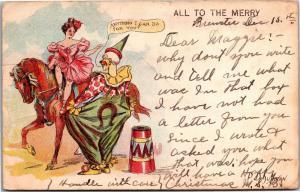 ALL TO THE MERRY
Brewster Dec 15
ANYTHING I CAN DO
FOR YOU?
Dear Maggie:
why dont you write
and tell me what
was in that box
I have not had
a letter from you
since I wrote &
asked you what
that was, hope you
will have a
Christmas
Handle with care